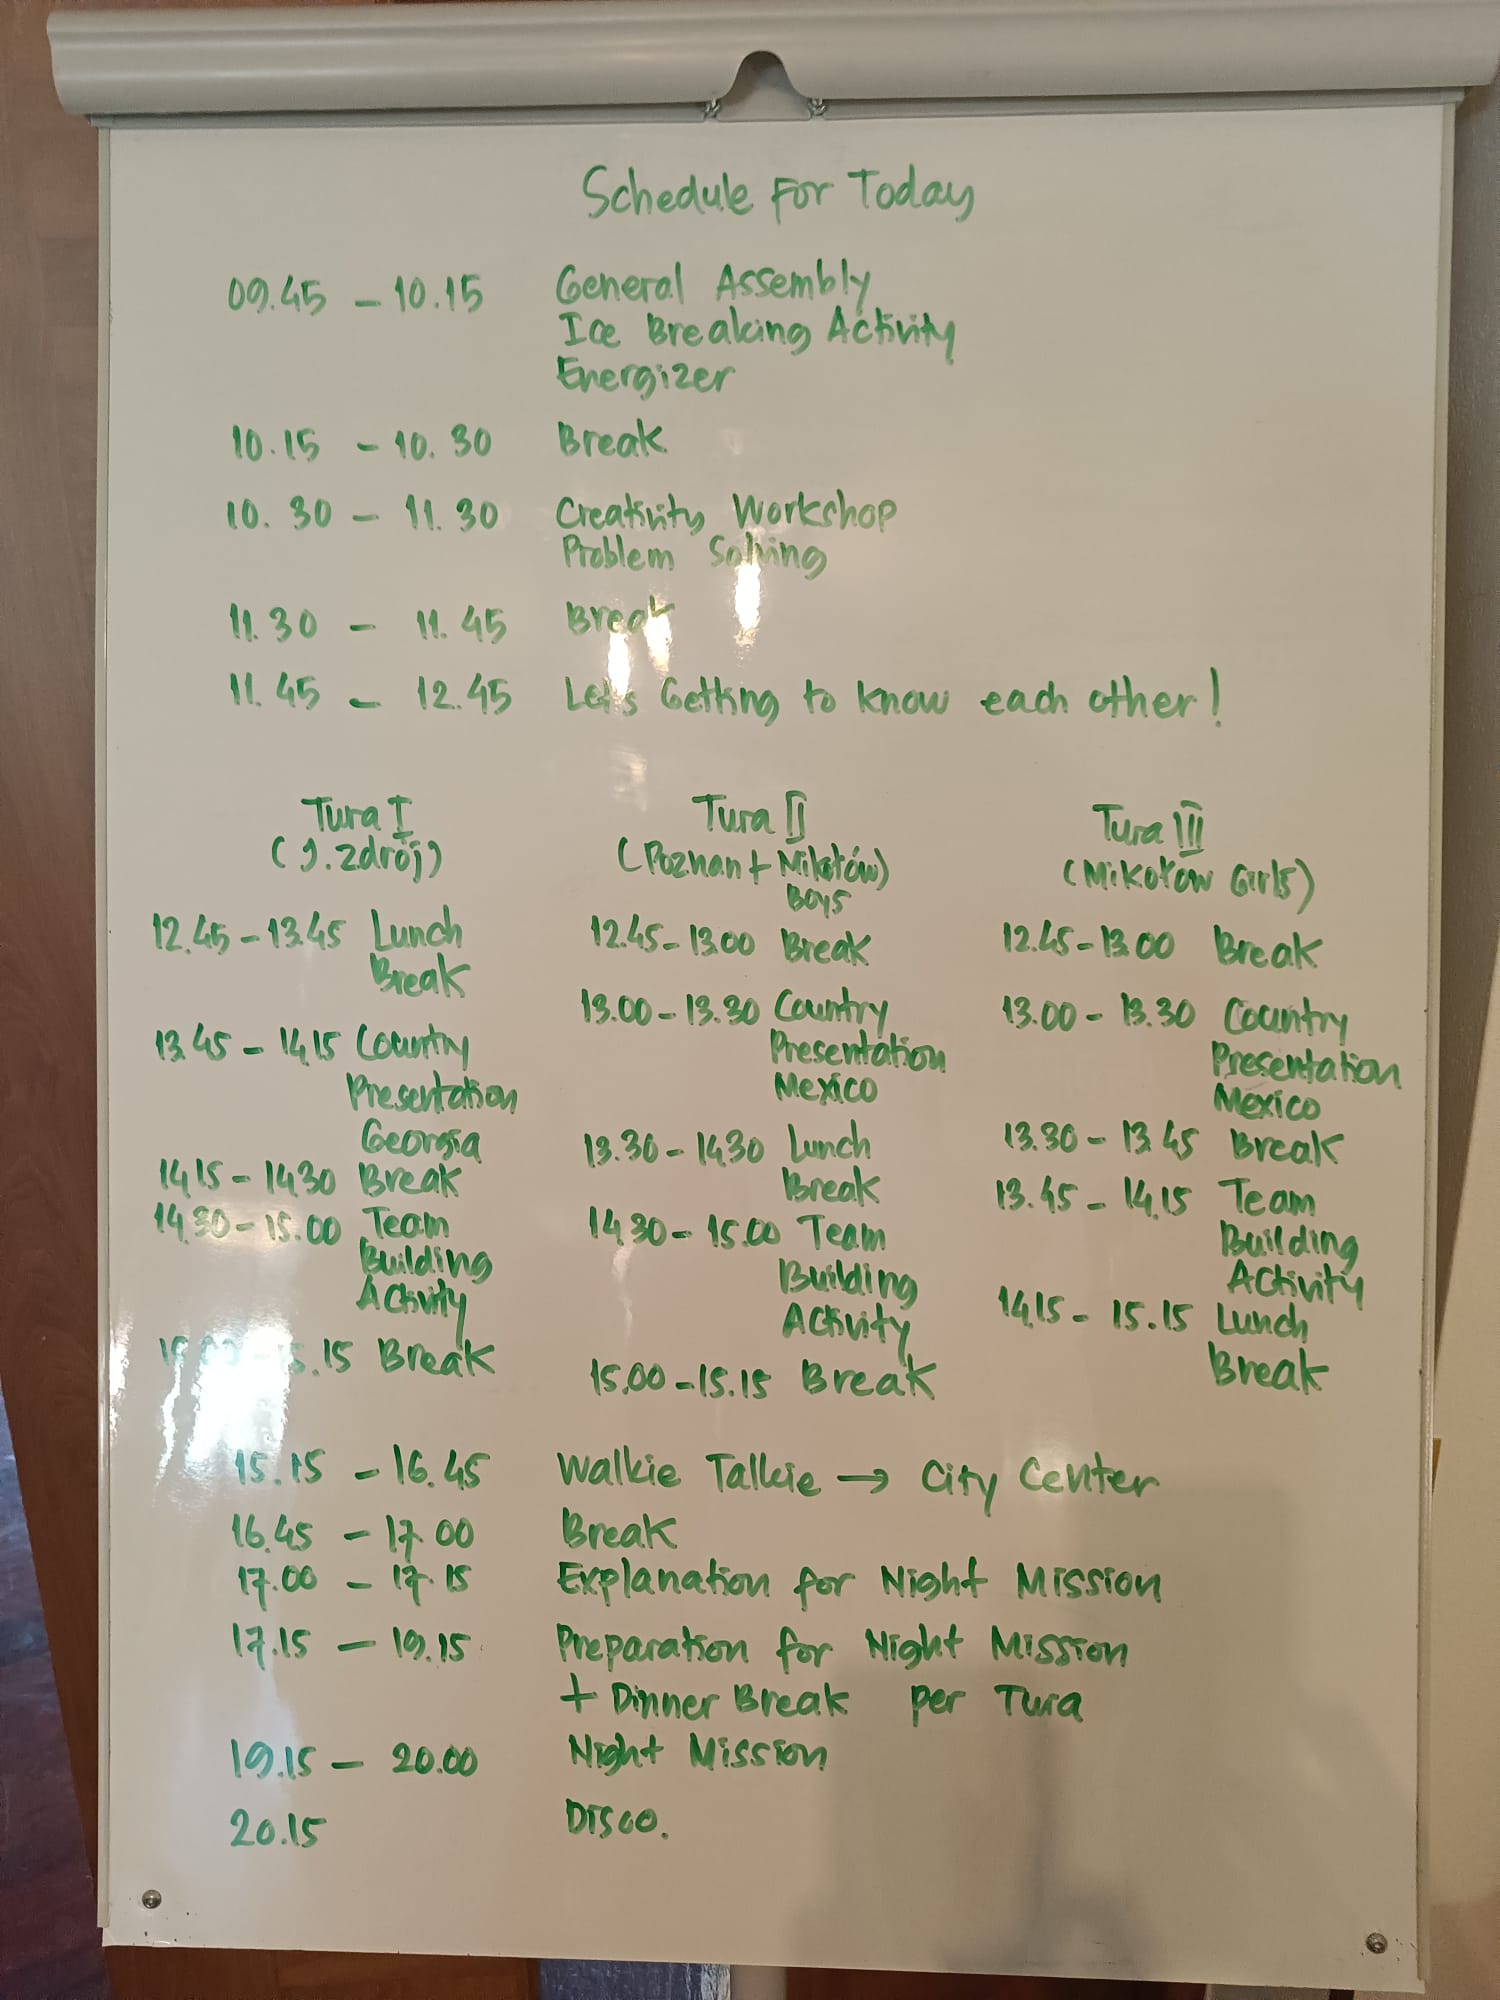 Schedule For Today
09.45 - 10.15 General Assembly
Ice Breaking Activity
Energizer
10.15 - 10.30 Break
10.30 - 11.30 Creativity Workshop
Problem Solving
11.30 - 11.45 Break
11.45 - 12.45 Let's Getting to know each other!
Tura I
(J. Zdrój)
12.45 - 13.45 Lunch
Break
13.45 - 14.15 Country
Presentation
Georgia
14.15 - 14.30 Break
14.30 - 15.00 Team
Building
Activity
15.15 Break
Tura II
(Poznan + Mikołów)
Boys
12.45 - 13.00 Break
13.00 - 13.30 Country
Presentation
Mexico
13.30 - 14.30 Lunch
Break
14.30 - 15.00 Team
Building
Activity
15.00 - 15.15 Break
Tura III
(Mikołow Girls)
12.45 - 13.00 Break
13.00 - 13.30 Country
Presentation
Mexico
13.30 - 13.45 Break
13.45 - 14.15 Team
Building
Activity
14.15 - 15.15 Lunch
Break
15.15 - 16.45 Walkie Talkie → City Center
16.45 - 17.00 Break
17.00 - 17.15 Explanation for Night Mission
17.15 - 19.15 Preparation for Night Mission
+ Dinner Break per Tura
19.15 - 20.00 Night Mission
20.15 Disco.